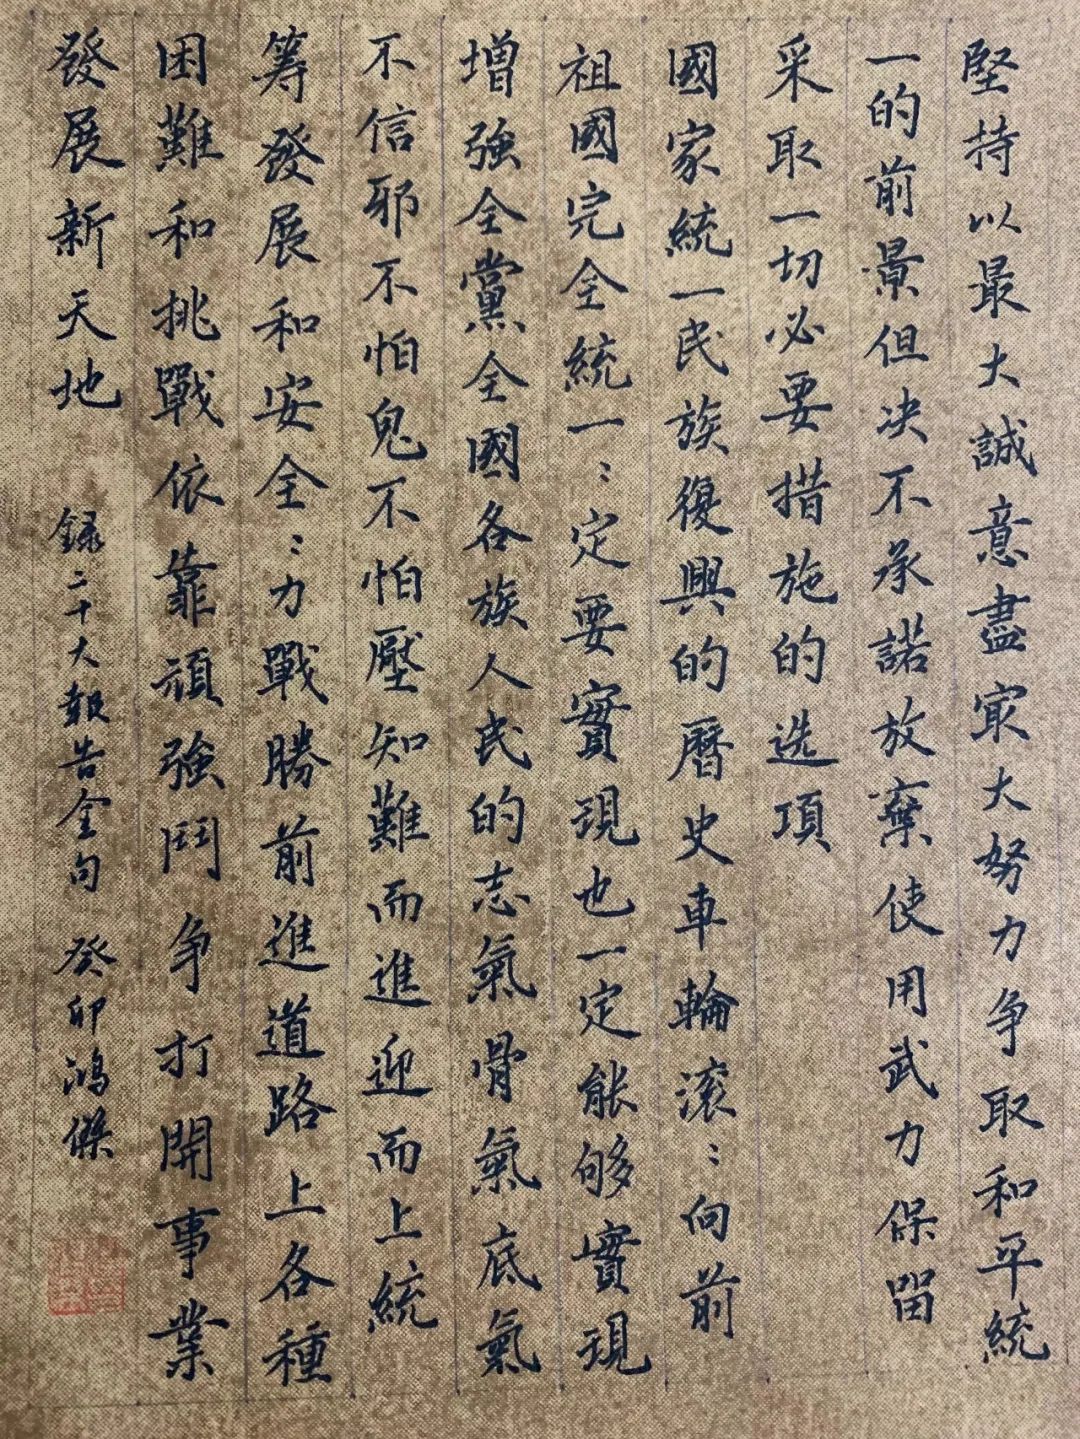 堅持以最大誠意盡最大努力争取和平統
一的前景但决不承諾放棄使用武力保留
采取一切必要措施的选項
國家統一民族復興的曆史車輪滚〻向前
祖國完全統一〻定要實現也一定能够實現
增強全黨全國各族人民的志氣骨氣底氣
不信邪不怕鬼不怕壓知難而進迎而上統
筹發展和安全〻力戰勝前進道路上各種
困難和挑戰依靠頑強鬥争打開事業
發展新天地
録二十大報告金句 癸卯鴻傑